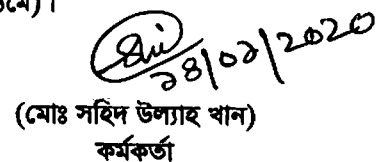 মে)।
২৪/০২/২০২০
(মোঃ সহিদ উল্যাহ খান)
কর্মকর্তা